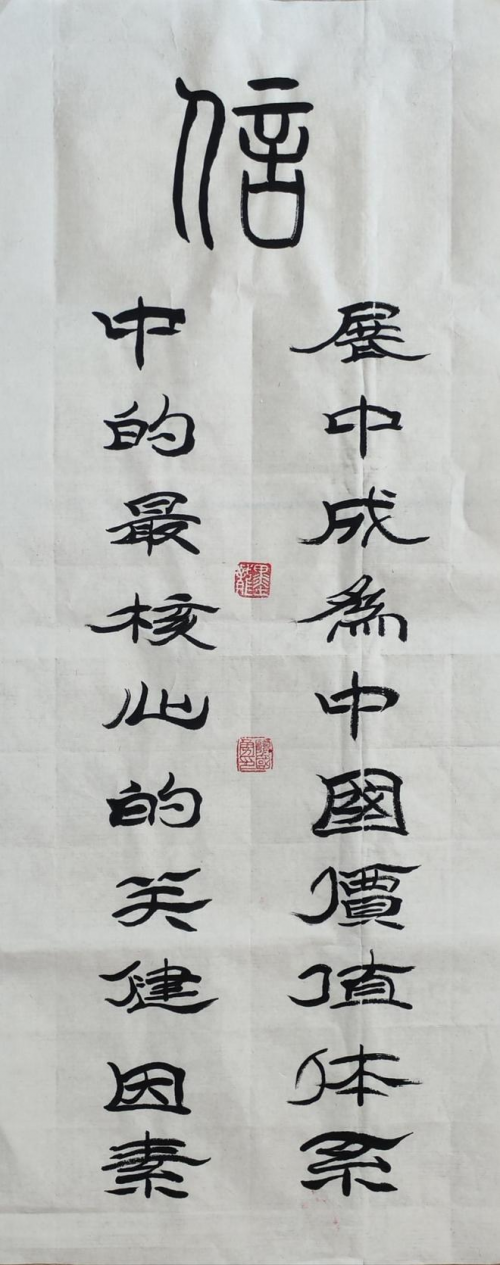 信
展中成為中國價值体系
中的最核心的关健因素